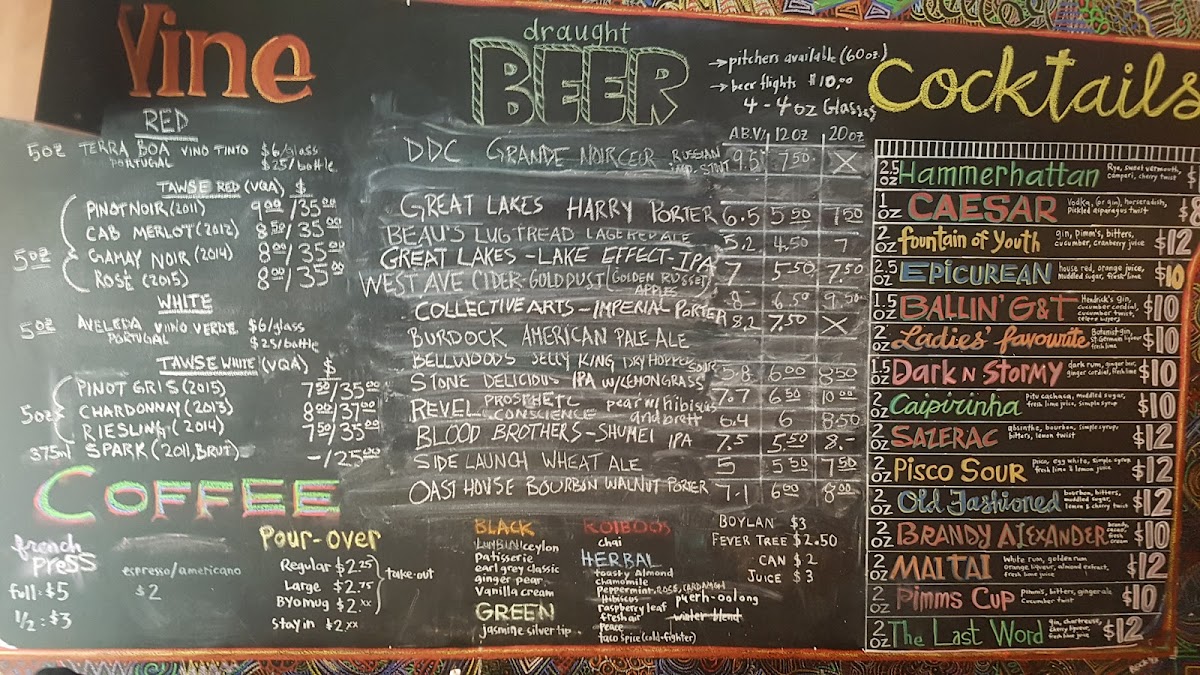 Vine
RED
5oz TERRA BOA VINO TINTO $6/glass
PORTUGAL $25/bottle
TAWSE RED (VQA) $
5oz
PINOT NOIR (2011) 9.00/35.00
CAB MERLOT (2012) 8.50/35.00
GAMAY NOIR (2014) 8.00/35.00
ROSÉ (2015) 8.00/35.00
WHITE
5oz AVELEDA VINO VERDE $6/glass
PORTUGAL $25/bottle
TAWSE WHITE (VQA) $
5oz
PINOT GRIS (2015) 7.50/35.00
CHARDONNAY (2013) 8.00/37.00
RIESLING (2014) 7.50/35.00
375ml SPARK (2011, BRUT) -/25.00
COFFEE
french press
full: $5
1/2: $3
espresso/americano
$2
Pour-over
Regular $2.25
Large $2.75
BYOmug $2.xx
take-out
Stay in $2.xx
draught
BEER
→ pitchers available (60oz)
→ beer flights $10.00
4 - 4oz Glasses
A.B.V/ 12oz 20oz
DDC GRANDE NOIRCEUR RUSSIAN IMP. STOUT 9.5 7.50 X
GREAT LAKES HARRY PORTER 6.5 5.50 7.50
BEAU'S LUGTREAD LAGERED ALE 5.2 4.50 7
GREAT LAKES - LAKE EFFECT - IPA 7 5.50 7.50
WEST AVE CIDER - GOLD DUST (GOLDEN RUSSET APPLES 8 6.50 9.50
COLLECTIVE ARTS - IMPERIAL PORTER 8.2 7.50 X
BURDOCK AMERICAN PALE ALE
BELLWOODS JELLY KING DRY HOPPED SOUR 5.8 6.00 8.50
STONE DELICIOUS IPA W/LEMONGRASS 7.7 6.50 10.00
REVEL PROSTHETC CONSCIENCE pear w/hibiscus and brett 6.4 6 8.50
BLOOD BROTHERS - SHUMEI IPA 7.5 5.50 8.-
SIDE LAUNCH WHEAT ALE 5 5.50 7.50
OAST HOUSE BOURBON WALNUT PORTER 7.1 6.00 8.00
BLACK
ceylon
patisserie
earl grey classic
ginger pear
vanilla cream
GREEN
jasmine silver tip
ROIBOOS
chai
HERBAL
toasty Almond
chamomile
Peppermint, ROSE, CARDAMOM
Hibiscus
raspberry leaf
fresh air
peace
taco spice (cold-fighter)
puerh-oolong
water blend
BOYLAN $3
FEVER TREE $2.50
CAN $2
JUICE $3
Cocktails
2.5 OZ Hammerhattan Rye, sweet vermouth, campari, cherry twist $
1 OZ CAESAR Vodka, (or gin), horseradish, Pickled asparagus twist $
2 OZ fountain of Youth gin, pimm's, bitters, cucumber, cranberry juice $12
2.5 OZ EPICUREAN house red, orange juice, muddled sugar, fresh lime $10
1.5 OZ BALLIN' G&T Hendrick's gin, cucumber cordial, cucumber twist, $10
2 OZ Ladies' favourite Botanist gin, St. Germain liqueur, fresh lime $10
1.5 OZ Dark N Stormy dark rum, ginger beer, ginger cordial, fresh lime $10
2 OZ Caipirinha Pitu cachaca, muddled sugar, fresh lime juice, simple syrup $10
2 OZ SAZERAC absinthe, bourbon, simple syrup bitters, lemon twist $12
2 OZ PISCO SOUR Pisco, egg white, simple syrup fresh lime & lemon juice $12
2 OZ Old Fashioned bourbon, bitters, muddled sugar, lemon & cherry twist $12
2 OZ BRANDY AlEXANDER brandy, cacao, fresh cream $10
2 OZ MAI TAI White rum, golden rum orange liqueur, almond extract, fresh lime juice $12
2 OZ Pimms Cup Pimm's, bitters, ginger ale Cucumber twist $10
2 OZ The Last Word gin, chartreuse, cherry liqueur, fresh lime juice $12